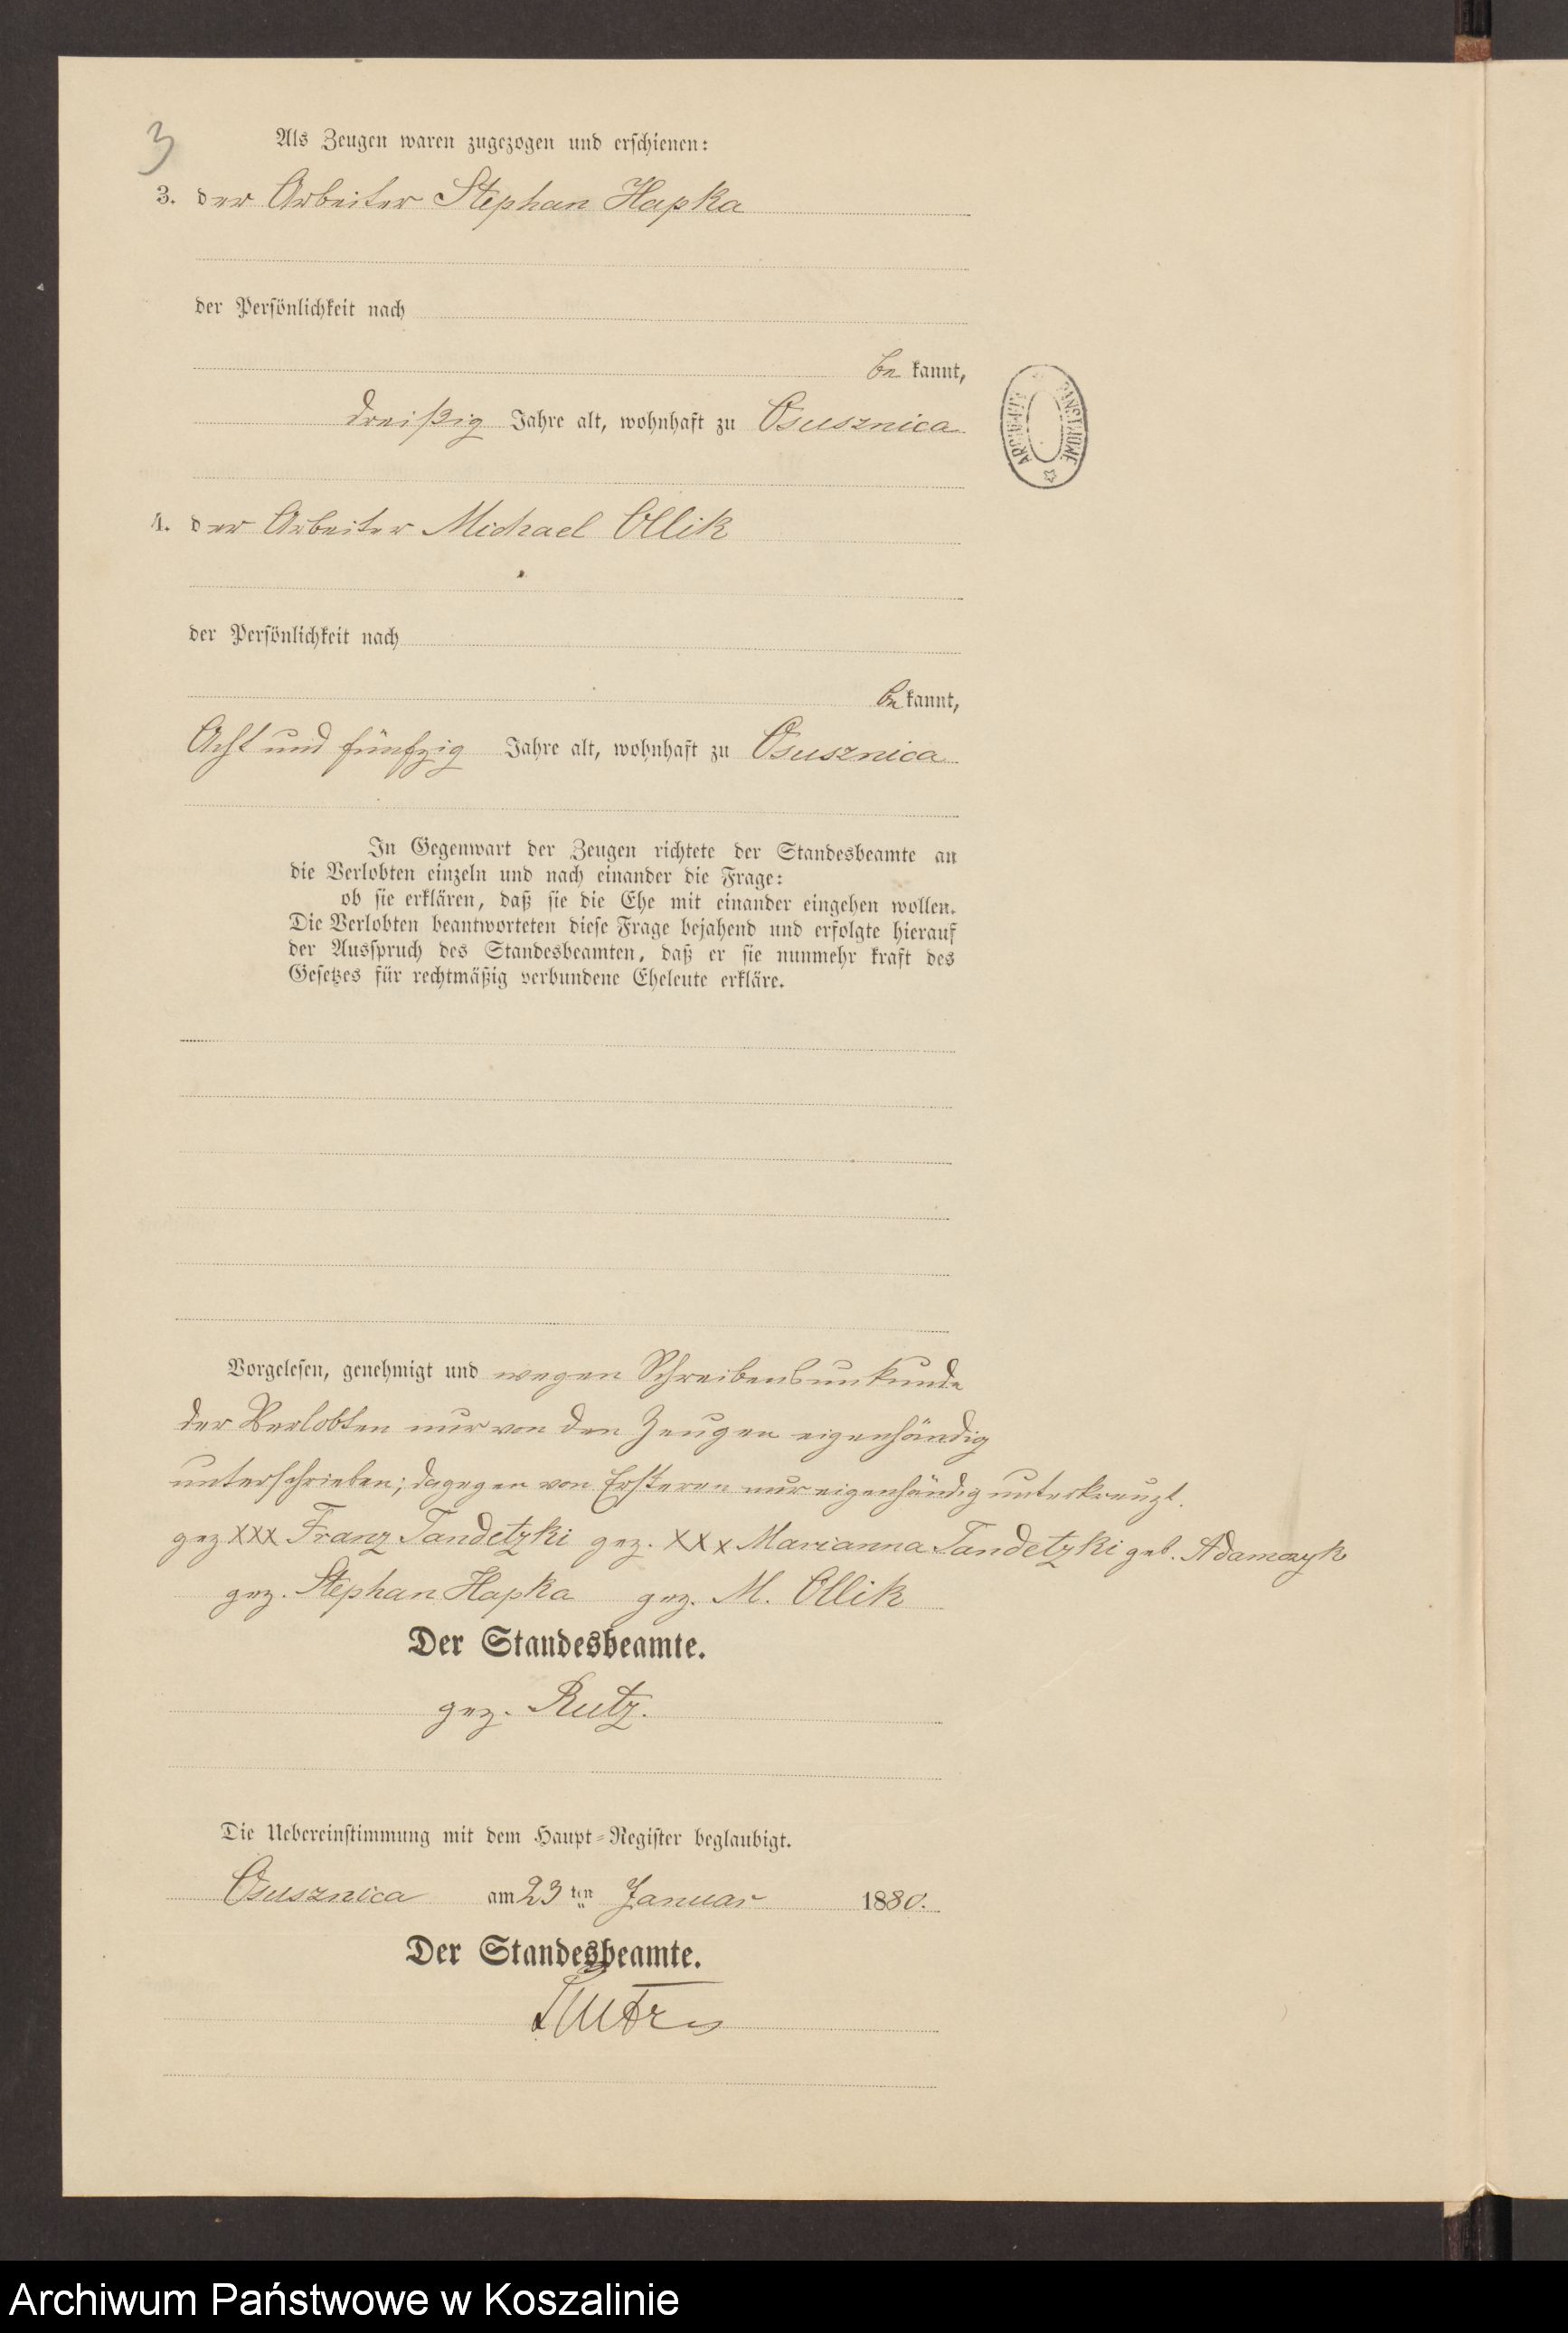 3
Als Zeugen waren zugezogen und erschienen:
3. der Arbeiter Stephan Hapka
der Persönlichkeit nach
be kannt,
dreißig Jahre alt, wohnhaft zu Osusznica
4. der Arbeiter Michael Ollik
der Persönlichkeit nach
be kannt,
Acht und fünfzig Jahre alt, wohnhaft zu Osusznica
In Gegenwart der Zeugen richtete der Standesbeamte an
die Verlobten einzeln und nach einander die Frage:
ob sie erklären, daß sie die Ehe mit einander eingehen wollen.
Die Verlobten beantworteten diese Frage bejahend und erfolgte hierauf
der Ausspruch des Standesbeamten, daß er sie nunmehr kraft des
Gesetzes für rechtmäßig verbundene Eheleute erkläre.
Vorgelesen, genehmigt und wegen Schreibensunkunde
der Verlobten nur von den Zeugen eigenhändig
unterschrieben; dagegen von Ersteren nur eigenhändig unterkreuzt.
gez XXX Franz Tandetzki gez. XXX Marianna Tandetzki geb. Adamczyk
gez. Stephan Hapka gez. M. Ollik
Der Standesbeamte.
gez. Rutz.
Die Uebereinstimmung mit dem Haupt-Register beglaubigt.
Osusznica am 23 ten Januar 1880.
Der Standesbeamte.
Rutz
Archiwum Państwowe w Koszalinie